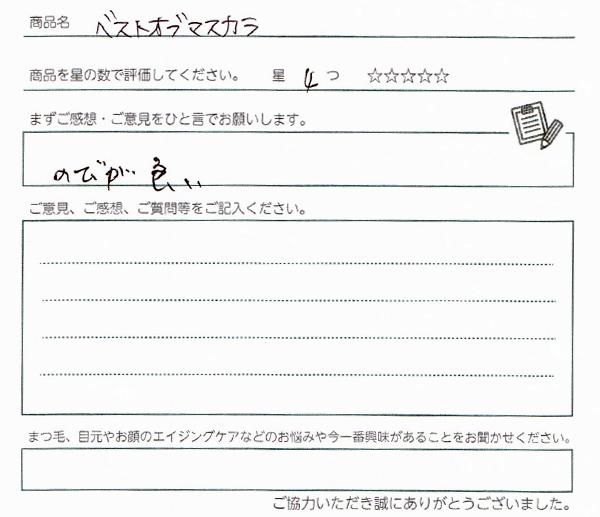 商品名 ベストオブマスカラ
商品を星の数で評価してください。 星 4 つ ☆☆☆☆☆
まずご感想・ご意見をひと言でお願いします。
のびが良い
ご意見、ご感想、ご質問等をご記入ください。
まつ毛、目元やお顔のエイジングケアなどのお悩みや今一番興味があることをお聞かせください。
ご協力いただき誠にありがとうございました。